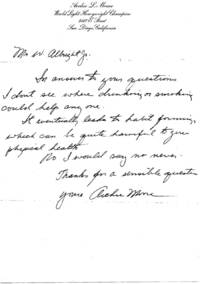 Archie L. Moore
World Light Heavyweight Champion
San Diego, California
Mr. W. Albright Jr.
In answer to your question
I dont see where drinking or smoking
could help any one.
It eventually leads to habit forming,
which can be quite harmful to your
physical health
No I would say no never.
Thanks for a sensible question
yours Archie Moore